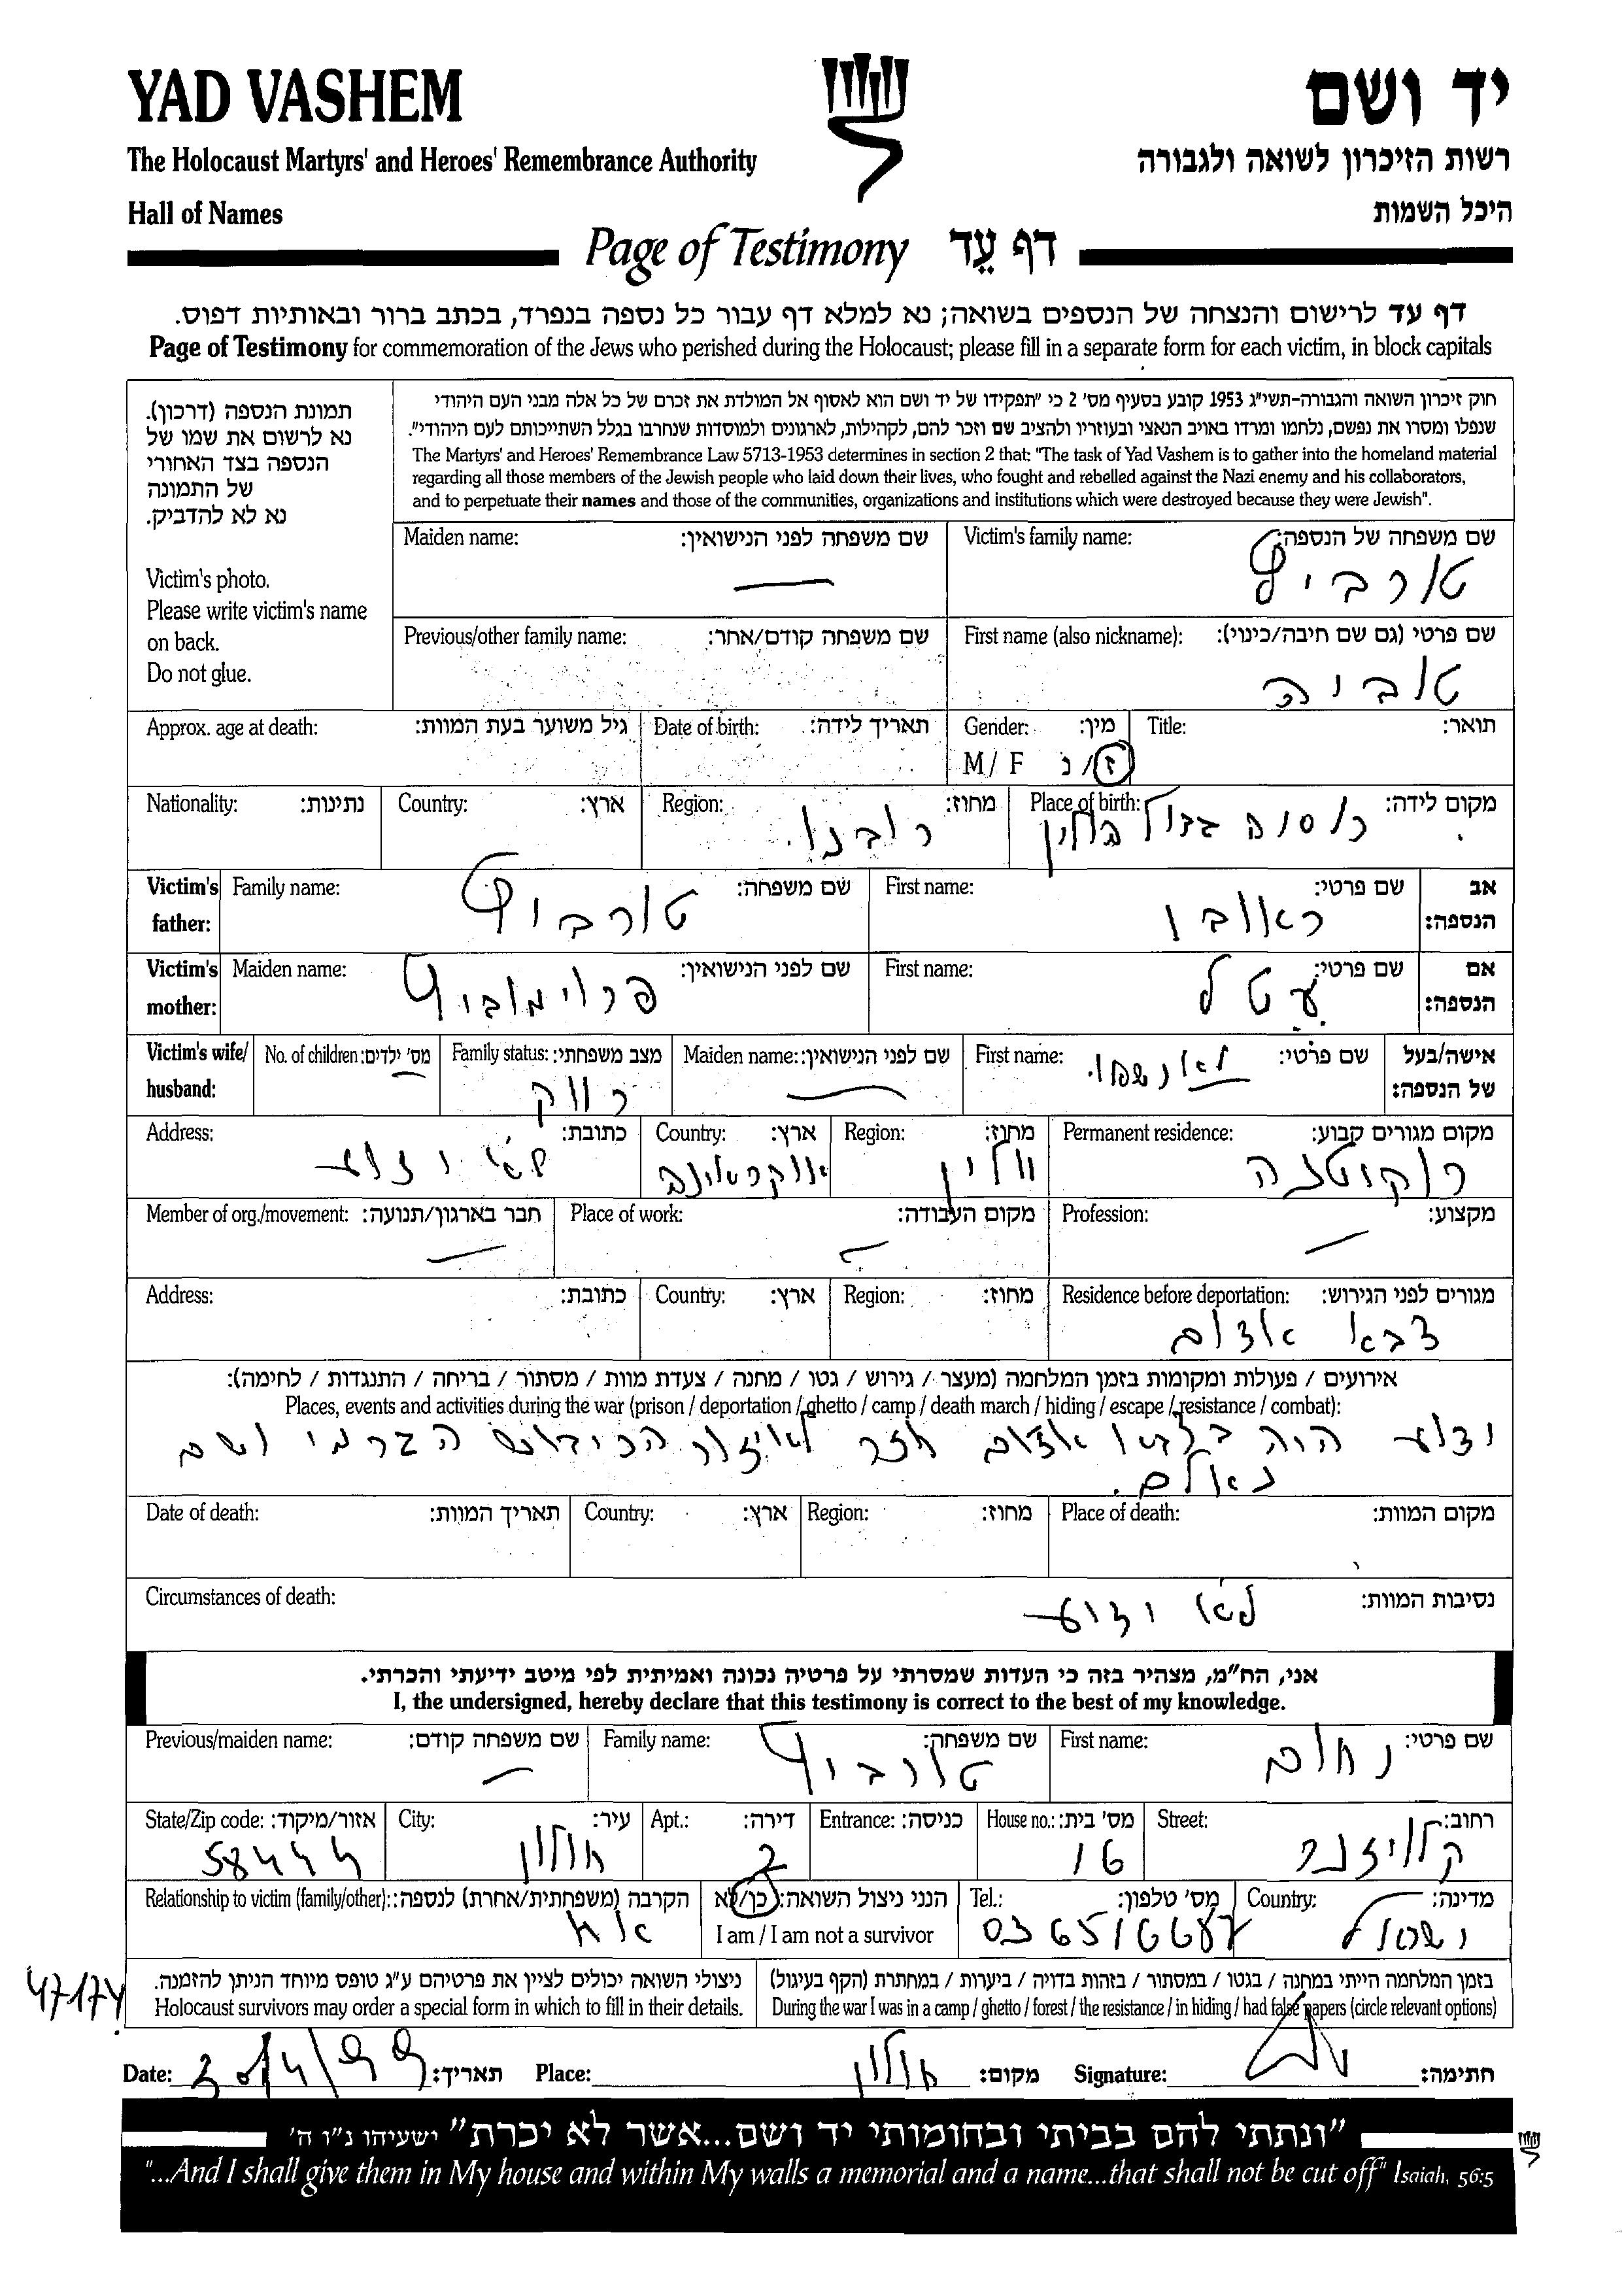 YAD VASHEM
יד ושם
The Holocaust Martyrs' and Heroes' Remembrance Authority
רשות הזיכרון לשואה ולגבורה
Hall of Names
היכל השמות
Page of Testimony דף עֵד
דף עד לרישום והנצחה של הנספים בשואה; נא למלא דף עבור כל נספה בנפרד, בכתב ברור ובאותיות דפוס.
Page of Testimony for commemoration of the Jews who perished during the Holocaust; please fill in a separate form for each victim, in block capitals
תמונת הנספה (דרכון).
נא לרשום את שמו של
הנספה בצד האחורי
של התמונה
נא לא להדביק.
Victim's photo.
Please write victim's name
on back.
Do not glue.
חוק זיכרון השואה והגבורה-תשי"ג 1953 קובע בסעיף מס' 2 כי "תפקידו של יד ושם הוא לאסוף אל המולדת את זכרם של כל אלה מבני העם היהודי
שנפלו ומסרו את נפשם, נלחמו ומרדו באויב הנאצי ובעוזריו ולהציב שם וזכר להם, לקהילות, לארגונים ולמוסדות שנחרבו בגלל השתייכותם לעם היהודי".
The Martyrs' and Heroes' Remembrance Law 5713-1953 determines in section 2 that: "The task of Yad Vashem is to gather into the homeland material
regarding all those members of the Jewish people who laid down their lives, who fought and rebelled against the Nazi enemy and his collaborators,
and to perpetuate their names and those of the communities, organizations and institutions which were destroyed because they were Jewish".
שם משפחה של הנספה: Victim's family name:
טורביץ
שם משפחה לפני הנישואין: Maiden name:
שם פרטי (גם שם חיבה/כינוי): First name (also nickname):
טוביה
שם משפחה קודם/אחר: Previous/other family name:
תואר: Title:
מין: Gender:
ז/נ M/ F
תאריך לידה: Date of birth:
גיל משוער בעת המוות: Approx. age at death:
מקום לידה: Place of birth:
מחוז: Region:
רובנו.
ארץ: Country:
נתינות: Nationality:
אב הנספה: Victim's father:
שם פרטי: First name:
ראובן
שם משפחה: Family name:
טורביץ
אם הנספה: Victim's mother:
שם פרטי: First name:
עטל
שם לפני הנישואין: Maiden name:
פרוימוביץ
אישה/בעל של הנספה: Victim's wife/ husband:
שם פרטי: First name:
שם לפני הנישואין: Maiden name:
מצב משפחתי: Family status:
רווק
מס' ילדים: No. of children:
מקום מגורים קבוע: Permanent residence:
רוקיטנה
מחוז: Region:
ווהלין
ארץ: Country:
אוקראינה
כתובת: Address:
לא ידוע
מקצוע: Profession:
מקום העבודה: Place of work:
חבר בארגון/תנועה: Member of org./movement:
מגורים לפני הגירוש: Residence before deportation:
צבא אדום
מחוז: Region:
ארץ: Country:
כתובת: Address:
אירועים / פעולות ומקומות בזמן המלחמה (מעצר / גירוש / גטו / מחנה / צעדת מוות / מסתור / בריחה / התנגדות / לחימה):
Places, events and activities during the war (prison / deportation / ghetto / camp / death march / hiding / escape / resistance / combat):
ידוע היה בצבא אדום חזר לאיזור הכיבוש הגרמני ושם
נעלם.
מקום המוות: Place of death:
מחוז: Region:
ארץ: Country:
תאריך המוות: Date of death:
נסיבות המוות: Circumstances of death:
לא ידוע
אני, הח"מ, מצהיר בזה כי העדות שמסרתי על פרטיה נכונה ואמיתית לפי מיטב ידיעתי והכרתי.
I, the undersigned, hereby declare that this testimony is correct to the best of my knowledge.
שם פרטי: First name:
נחום
שם משפחה: Family name:
טורביץ
שם משפחה קודם: Previous/maiden name:
רחוב: Street:
קלויזנר
מס' בית: House no.:
16
כניסה: Entrance:
דירה: Apt.:
2
עיר: City:
חולון
אזור/מיקוד: State/Zip code:
58444
מדינה: Country:
ישראל
מס' טלפון: Tel.:
03 6516687
הנני ניצול השואה: כן/לא
I am / I am not a survivor
הקרבה (משפחתית/אחרת) לנספה: Relationship to victim (family/other):
אח
בזמן המלחמה הייתי במחנה / בגטו / במסתור / בזהות בדויה / ביערות / במחתרת (הקף בעיגול)
During the war I was in a camp / ghetto / forest / the resistance / in hiding / had false papers (circle relevant options)
ניצולי השואה יכולים לציין את פרטיהם ע"ג טופס מיוחד הניתן להזמנה.
Holocaust survivors may order a special form in which to fill in their details.
47174
חתימה: Signature:
מקום: Place:
חולון
תאריך: Date:
30/4/99
"ונתתי להם בביתי ובחומותי יד ושם...אשר לא יכרת" ישעיהו נ"ו ה'
"...And I shall give them in My house and within My walls a memorial and a name...that shall not be cut off" Isaiah, 56:5